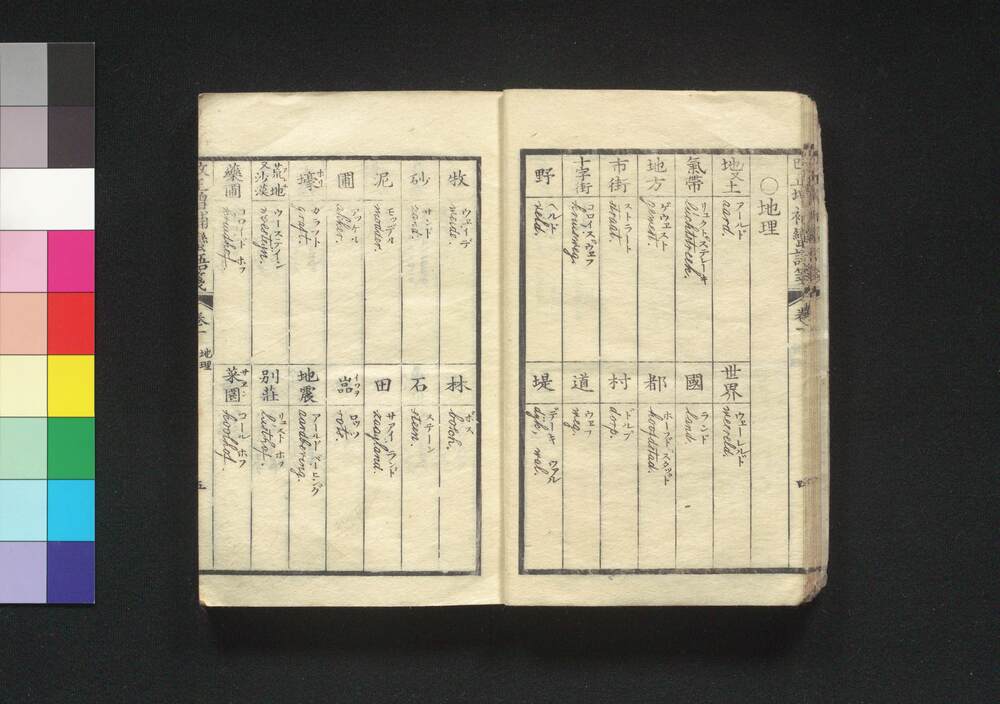 改正增補蠻語箋 卷一
○地理
地又土 アールド aard.
世界 ウェーレルド wereld.
氣帶 リュクトストレーキ luchtstreek.
國 ランド land.
地方 ゲウェスト gewest.
都 ホーフドスタット hoofdstad.
市街 ストラート straat.
村 ドルプ dorp.
十字街 コロイスウェフ kruisweg.
道 ウェフ weg.
野 ヘルド veld.
堤 デーキ ワァル dijk, wal.
牧 ウェイデ weide.
林 ボス bosch.
砂 サンド zand.
石 ステーン steen.
泥 モッデル modder.
田 サアイランド zaayland.
圃 アッケル akker.
嵓 イワヲ ロッツ rots.
壕 ホリ ガラフト graft.
地震 アールドベービング aardbeving.
荒地又沙漠 ウーステイーン woestijn.
別莊 リュストホフ lusthof.
藥圃 コロイドホフ kruidhof.
菜園 サエン コールホフ koolhof.
改正增補蠻語箋 卷一 地理 五